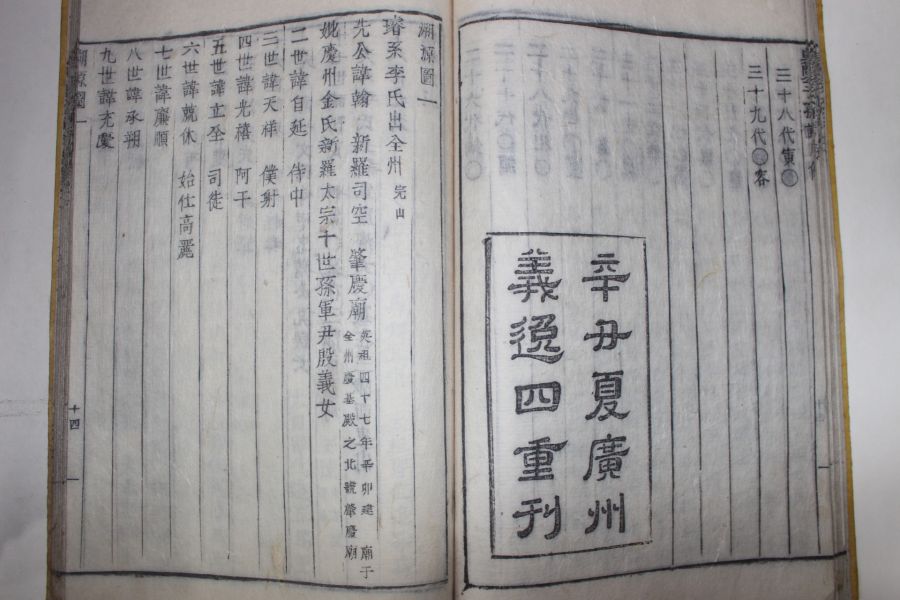 三十八代寅
三十九代 客
辛丑夏廣州
義逸四重刊
溯源圖一
璿系李氏出全州 完山
先公諱翰 新羅司空 肇慶廟 英祖四十七年辛卯建廟于全州慶基殿之北號肇慶廟
妣慶州金氏新羅太宗十世孫軍尹殷義女
二世諱自延 侍中
三世諱天祥 僕射
四世諱光禧 阿干
五世諱立全 司徒
六世諱兢休 始仕高麗
七世諱廉順
八世諱承朔
九世諱充慶
溯源圖一
十四